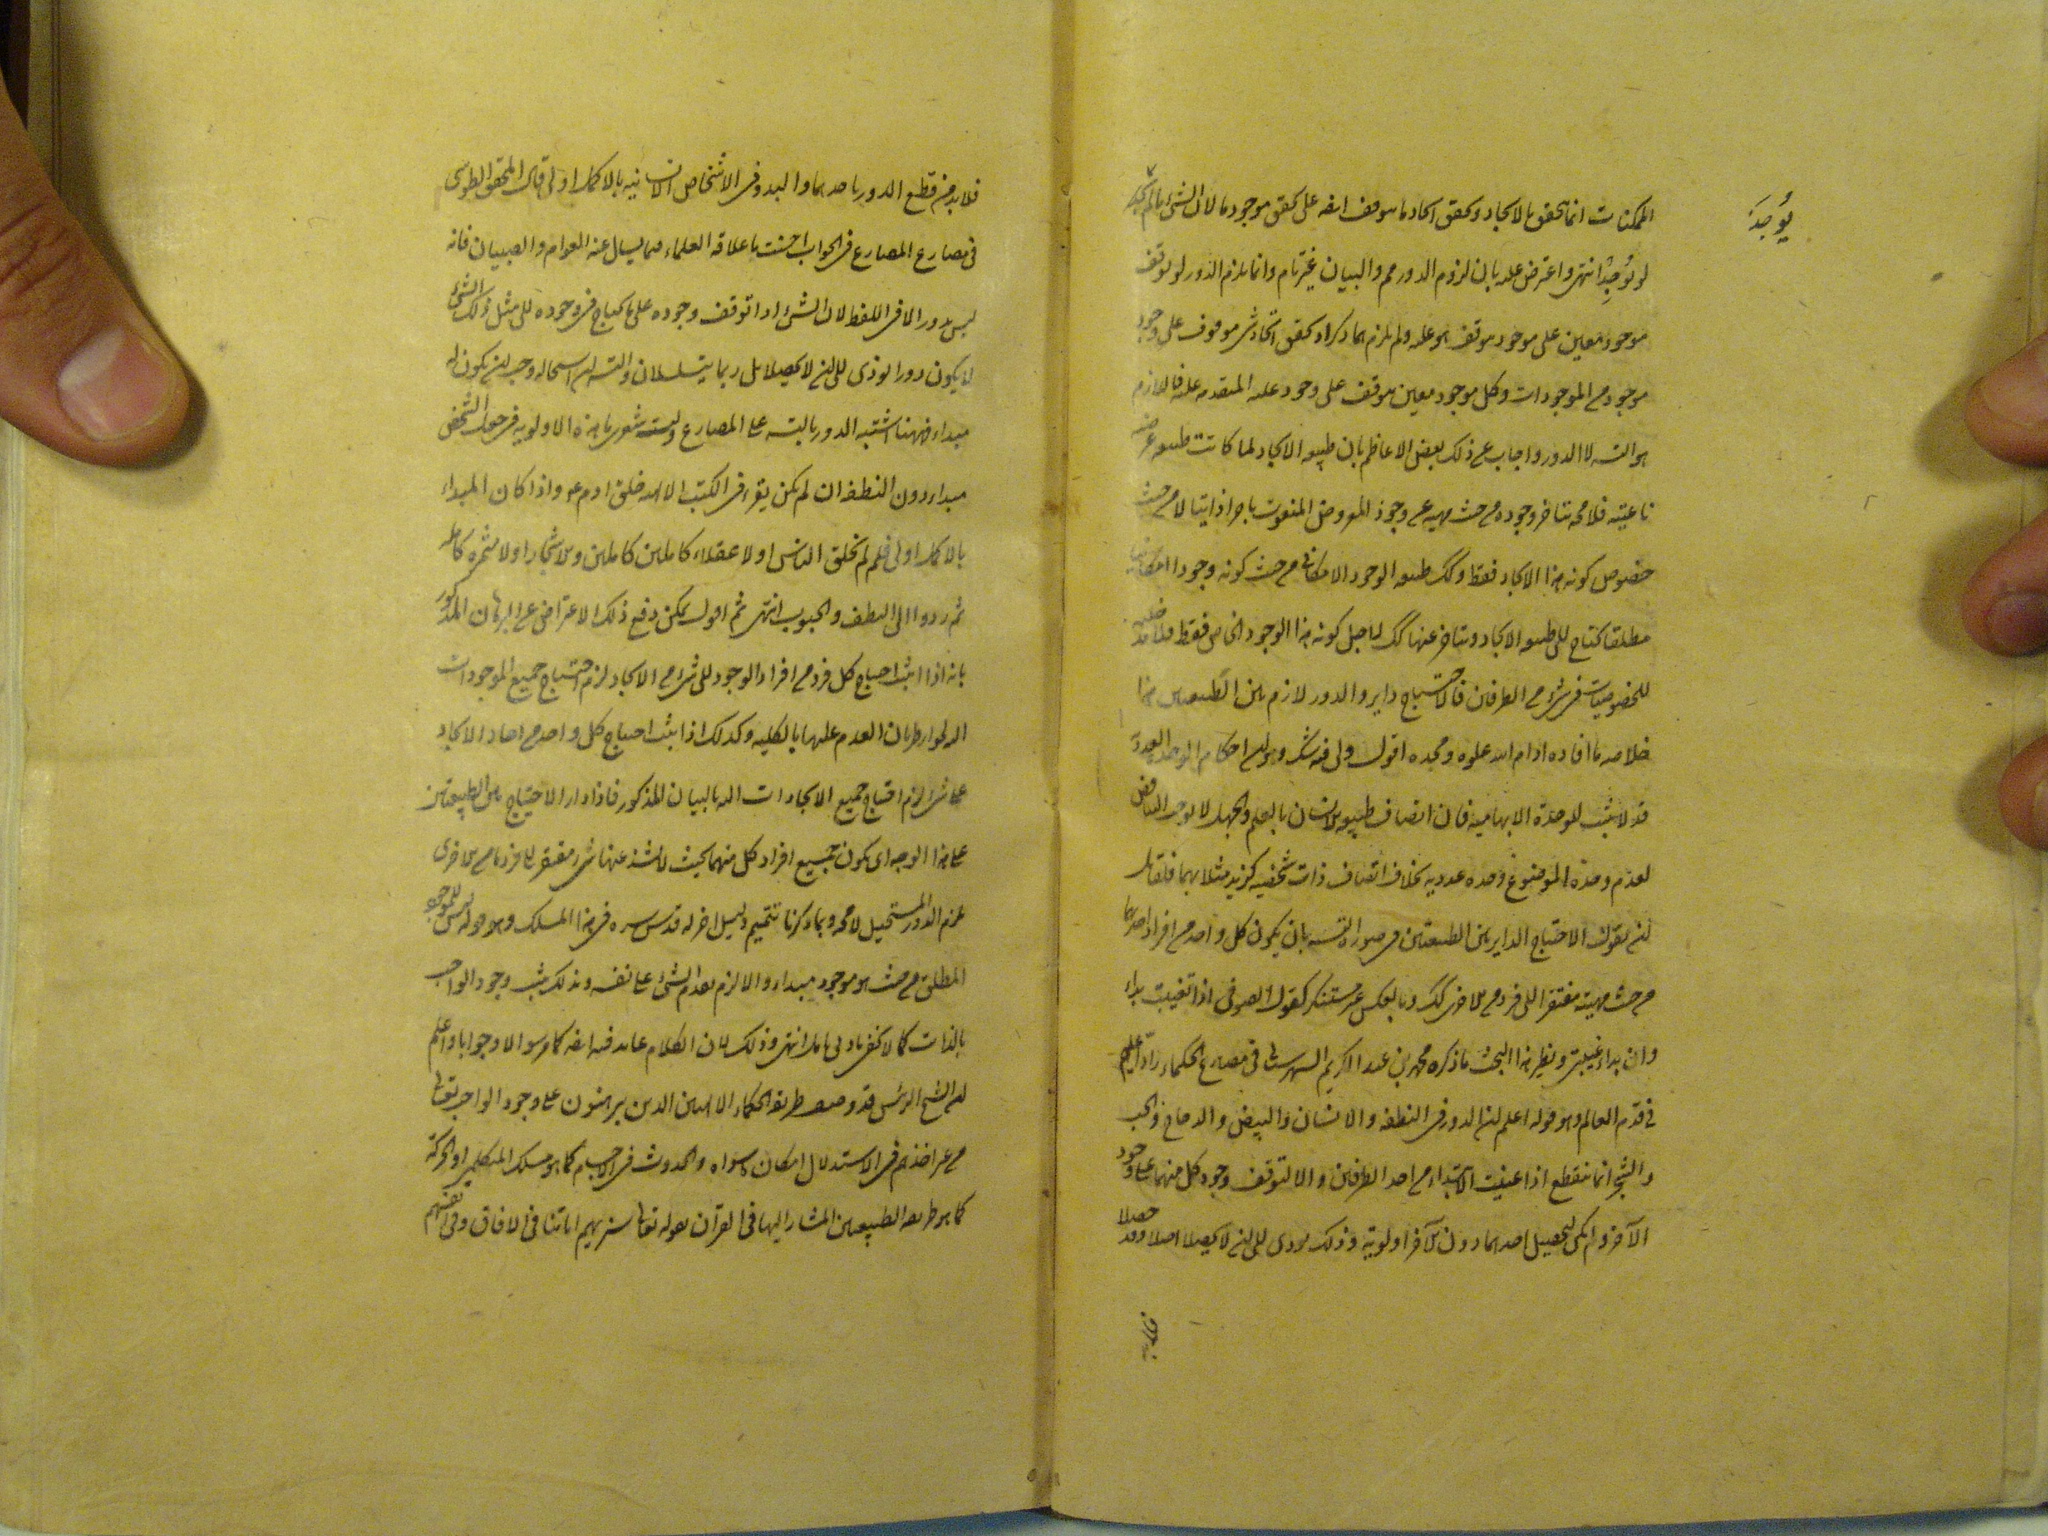 الممكنات انما يتحقق بالايجاد وتحقق ايجاد ما يتوقف ايضا على تحقق موجود ما لان الشئ ما لم يوجد
يُوجَد
لم يُوجِد انتهى واعترض عليه بان لزوم الدور مم والبيان غير تام وانما يلزم الدور لو توقف
موجود معين على موجود يتوقف هو عليه ولم يلزم مما ذكر اذ تحقق ايجاد شئ موقوف على وجود
موجود من الموجودات وكل موجود معين يتوقف على وجود علته المتقدمة عليه فاللازم
هو التسلسل لا الدور واجاب عن ذلك بعض الاعاظم بان طبيعة الايجاد لما كانت طبيعة
ناعتية فلا محة يتاخر وجوده من حيث هي عن وجود المعروض المنعوت تاخرا ذاتيا لا من حيث
خصوص كونه هذا الايجاد فقط وكك طبيعة الوجود الامكانى من حيث كونه وجودا امكانيا
مطلقا يحتاج الى طبيعة الايجاد ويتاخر عنها كك لا لاجل كونه هذا الوجود الخاص فقط فلا مدخلية
للخصوصيات فى شئ من الطرفين فالاحتياج داير والدور لازم بين الطبيعتين هذا
خلاصة ما افاده ادام الله علوه ومجده اقول ولى فيه شك وهو ان احكام الوحدة العددية
قد لا يثبت للوحدة الابهامية فان اتصاف طبيعة الانسان بالعلم والجهل لا يوجب التناقض
لعدم وحدة الموضوع وحدة عددية بخلاف اتصاف ذات شخصية كزيد مثلا بهما فلقائل
ان يقول الاحتياج الداير بين الطبيعتين فى صورة التسلسل بان يكون كل واحد من افراد احديهما
من حيث مهيته مفتقرا الى فرد من الاخرى كك وبالعكس غير مستنكر كقول الصوفى اذا تغيبت بدا
وان بدا غيبنى ونظير هذا البحث ما ذكره محمد بن عبد الكريم الشهرستانى فى مصارع الحكماء رادا عليهم
فى قدم العالم وهو قوله اعلم ان الدور فى النطفة والانسان والبيض والدجاج والحب
والشجر انما ينقطع اذا عينت الابتداء من احد الطرفين والا لتوقف وجود كل منهما على وجود
الآخر ولم يكن لتحصيل احدهما دون الآخر اولوية وذلك يودى الى ان لا يحصلا اصلا وقد حصلا
فلابد
فلابد من قطع الدور باحدهما والبدو فى الاشخاص الانسانية بالاكمل اولى قال المحقق الطوسى
فى مصارع المصارع فى الجواب احسنت يا علامة العلماء مما يسال عنه العوام والصبيان فانه
ليس بدور الا فى اللفظ لان الشئ اذا توقف وجوده على ما يحتاج فى وجوده الى مثل ذلك الشئ
لا يكون دورا يودى الى ان لا يحصلا بل ربما يتسلسلان والتسلسل ان استحال وجب ان يكون له
مبداء فههنا اشتبه الدور بالتسلسل على المصارع وليت شعرى ما هذه الاولوية فى جعل الشخص
مبداء دون النطفة ان لم يكن يقرء فى الكتب الالهية خلق ادم ع واذا كان المبداء
بالاكمل اولى فلم لم يخلق الناس اولا عقلاء كاملين والاشجار اولا مثمرة كاملة
ثم ردوا الى النطف والحبوب انتهى ثم اقول يمكن دفع ذلك الاعتراض عن البرهان المذكور
بانه اذا اثبت احتياج كل فرد من افراد الوجود الى شئ من الايجاد لزم احتياج جميع الموجودات
اليه لجواز طريان العدم عليها بالكلية وكذلك اذا ثبت احتياج كل واحد من احاد الايجاد
على شئ لزم احتياج جميع الايجادات اليه بالبيان المذكور فاذا دار الاحتياج بين الطبيعتين
على هذا الوجه اى يكون جميع افراد كل منهما بحيث لا يشذ عنها شئ مفتقرة الى فرد ما من الاخرى
لزم الدور المستحيل لا محة وبما ذكرنا تتميم دليل اخر له قدس سره فى هذا المسلك وهو قوله ليس للموجود
المطلق من حيث هو موجود مبداء والا لزم تقدم الشئ على نفسه وبذلك يثبت وجود الواجب
بالذات كما لا يخفى بادنى تامل انتهى وذلك لان الكلام عايد فيه ايضا كما مر سوالا وجوابا واعلم
ان الشيخ الرئيس قد وصف طريقة الحكماء الالهيين الذين يبرهنون على وجود الواجب تعالى
من غير اخذهم فى الاستدلال امكان ما سواه والحدوث فى الاجسام كما هو مسلك المتكلمين او الحركة
كما هو طريقة الطبيعيين المشار اليها فى القرآن بقوله تعالى سنريهم اياتنا فى الافاق وفى انفسهم